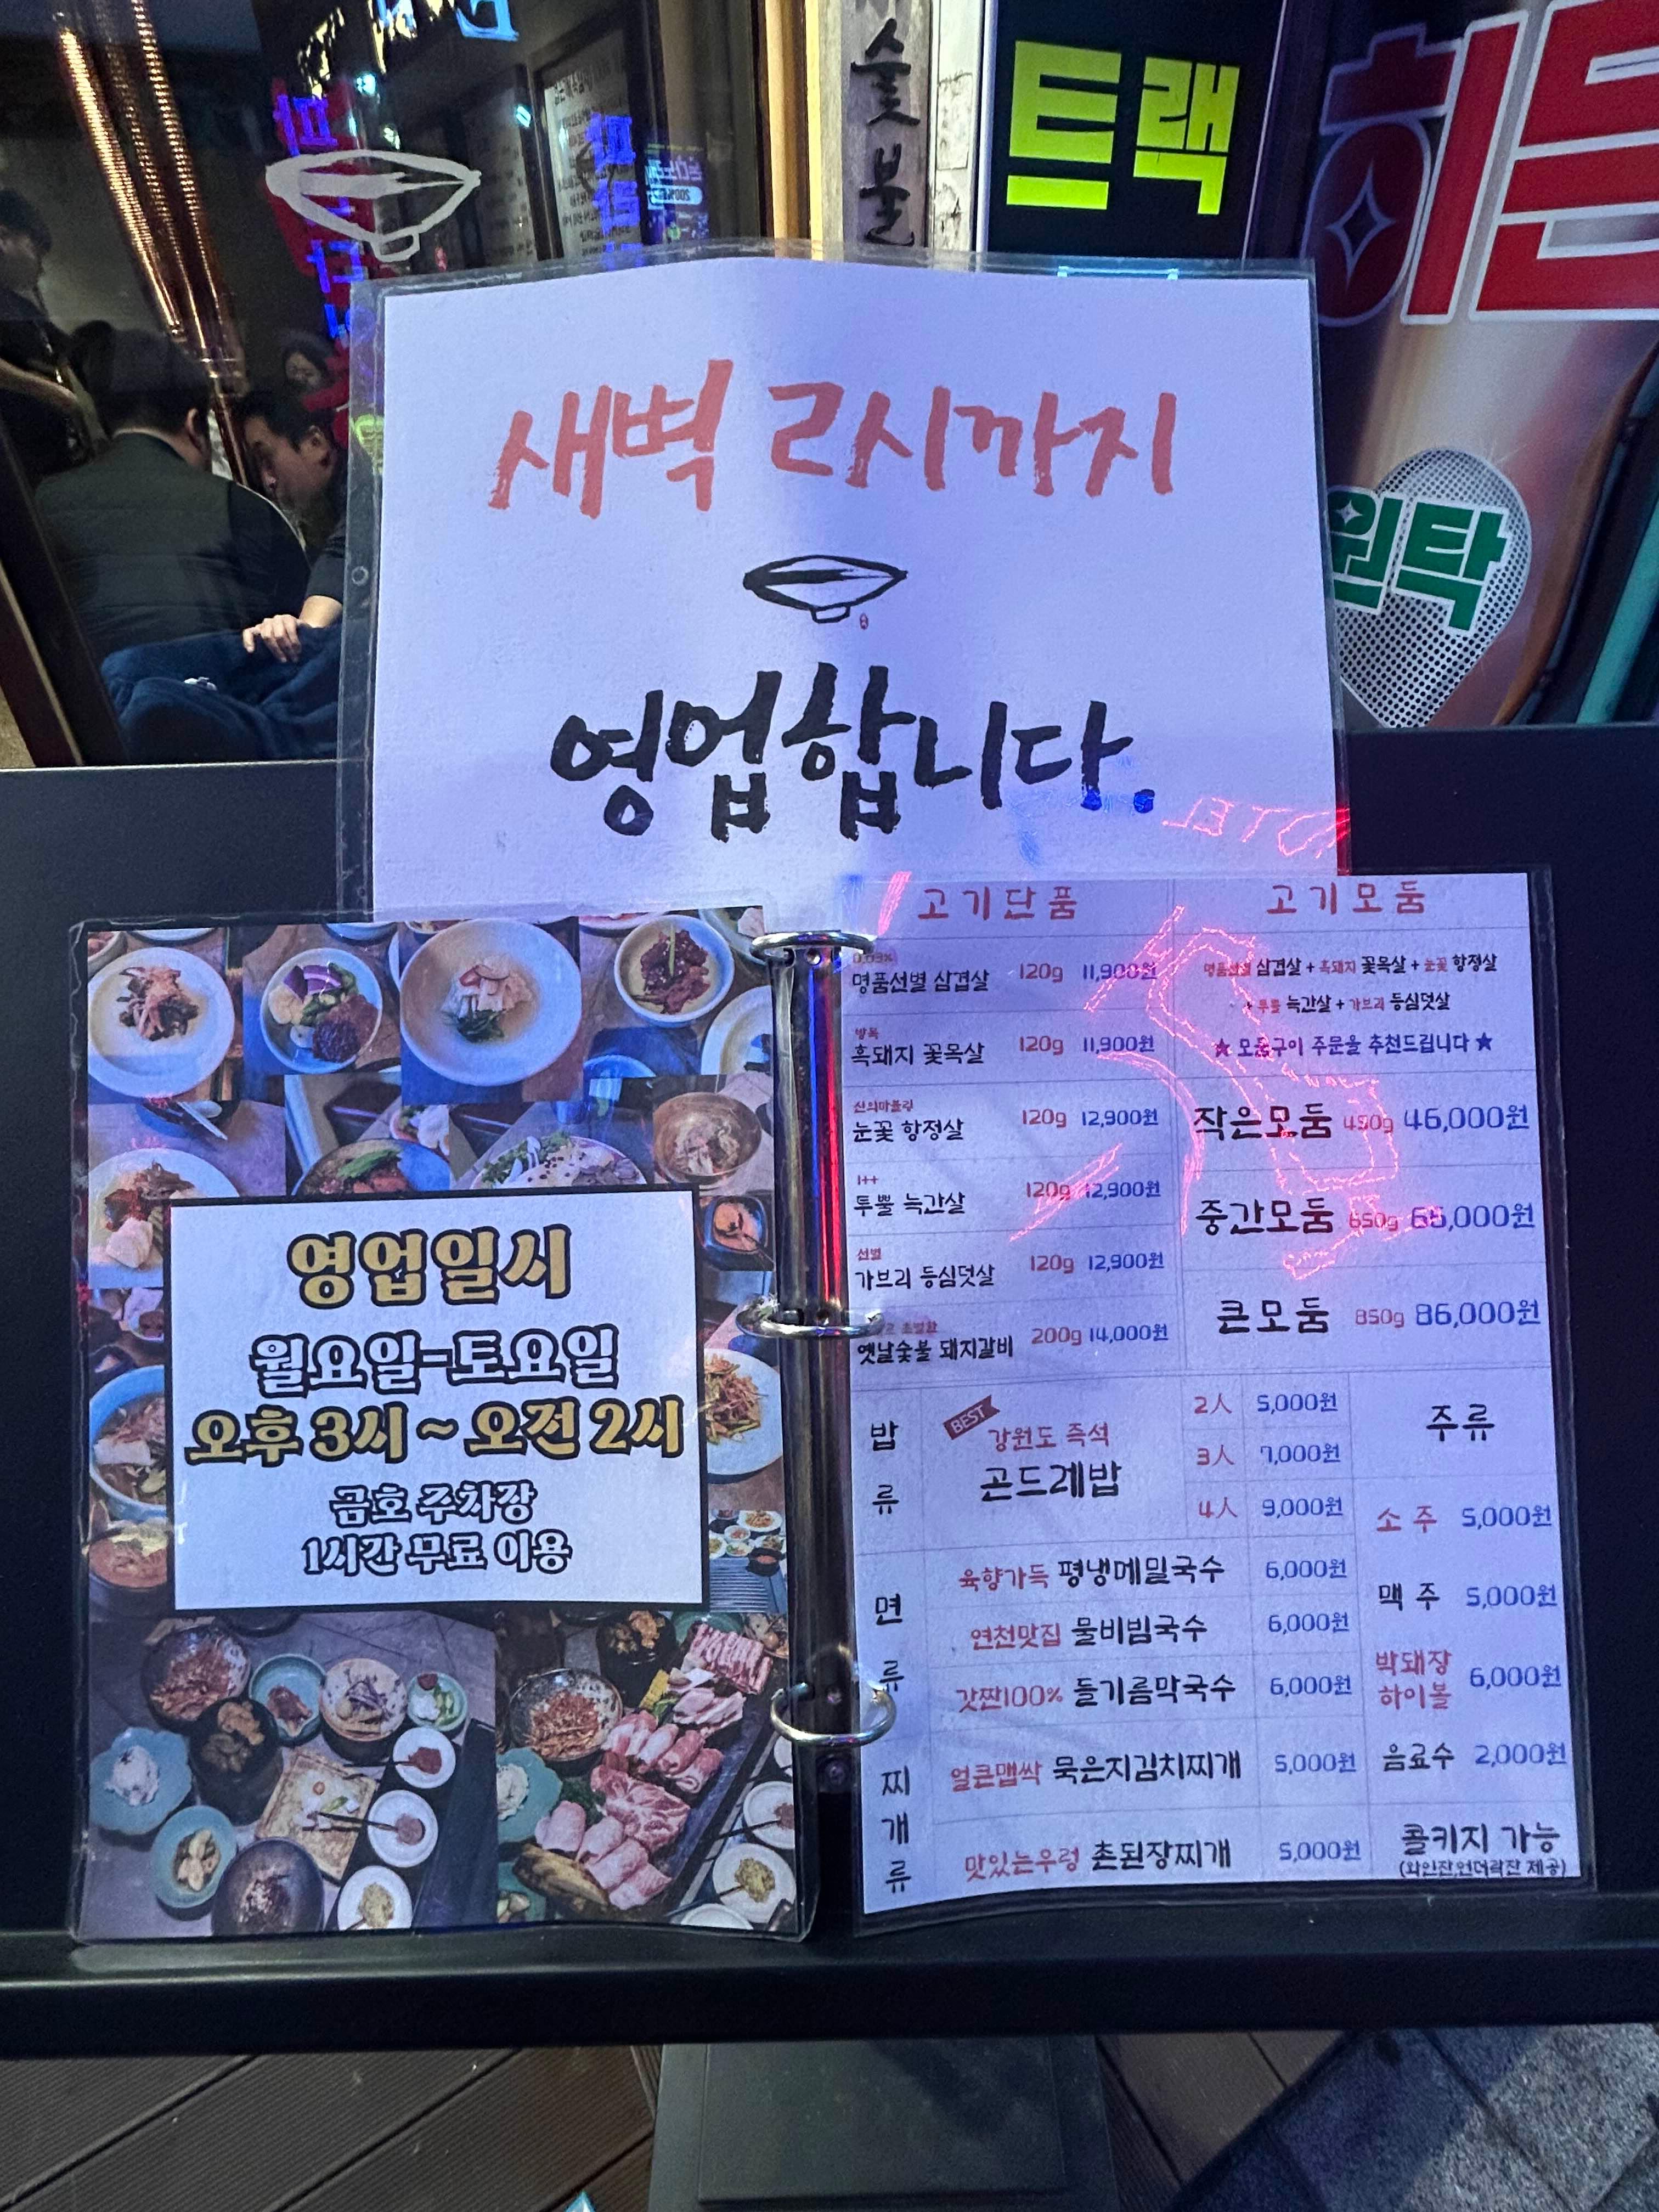 숯불
트랙
히든
원탁
새벽 2시까지
영업합니다.
영업일시
월요일-토요일
오후 3시 ~ 오전 2시
금호 주차장
1시간 무료 이용
고기단품
명품선별 삼겹살 120g 11,900원
흑돼지 꽃목살 120g 11,900원
신의마블링
눈꽃 항정살 120g 12,900원
1++
투뿔 늑간살 120g 12,900원
선별
가브리 등심덧살 120g 12,900원
옛날숯불 돼지갈비 200g 14,000원
고기모둠
명품선별 삼겹살 + 흑돼지 꽃목살 + 눈꽃 항정살
+ 투뿔 늑간살 + 가브리 등심덧살
★ 모둠구이 주문을 추천드립니다 ★
작은모둠 450g 46,000원
중간모둠 650g 66,000원
큰모둠 850g 86,000원
밥류
BEST
강원도 즉석
곤드레밥
2人 5,000원
3人 7,000원
4人 9,000원
면류
육향가득 평냉메밀국수 6,000원
연천맛집 물비빔국수 6,000원
갓짠100% 들기름막국수 6,000원
찌개류
얼큰맵싹 묵은지김치찌개 5,000원
맛있는우렁 촌된장찌개 5,000원
주류
소주 5,000원
맥주 5,000원
박돼장
하이볼 6,000원
음료수 2,000원
콜키지 가능
(와인잔,언더락잔 제공)